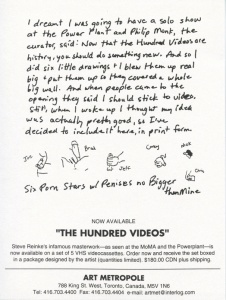 I dreamt I was going to have a solo show
at the Power Plant and Philip Monk, the
curator, said: Now that the Hundred Videos are
history, you should do something new. And so I
did six little drawings & I blew them up real
big & put them up so they covered a whole
big wall. And when people came to the
opening they said I should stick to video.
Still, when I woke up I thought my idea
was actually pretty good, so I've
decided to include it here, in print form
Jeff
Casey
Six Porn Stars w/ Penises no Bigger
than Mine
NOW AVAILABLE
"THE HUNDRED VIDEOS"
Steve Reinke's infamous masterwork—as seen at the MoMA and the Powerplant—is
now available on a set of 5 VHS videocassettes. Order now and receive the set boxed
in a package designed by the artist (quantities limited). $180.00 CDN plus shipping.
ART METROPOLE
788 King St. West, Toronto, Canada, M5V 1N6
Tel: 416.703.4400 Fax: 416.703.4404 e-mail: artmet@interlog.com